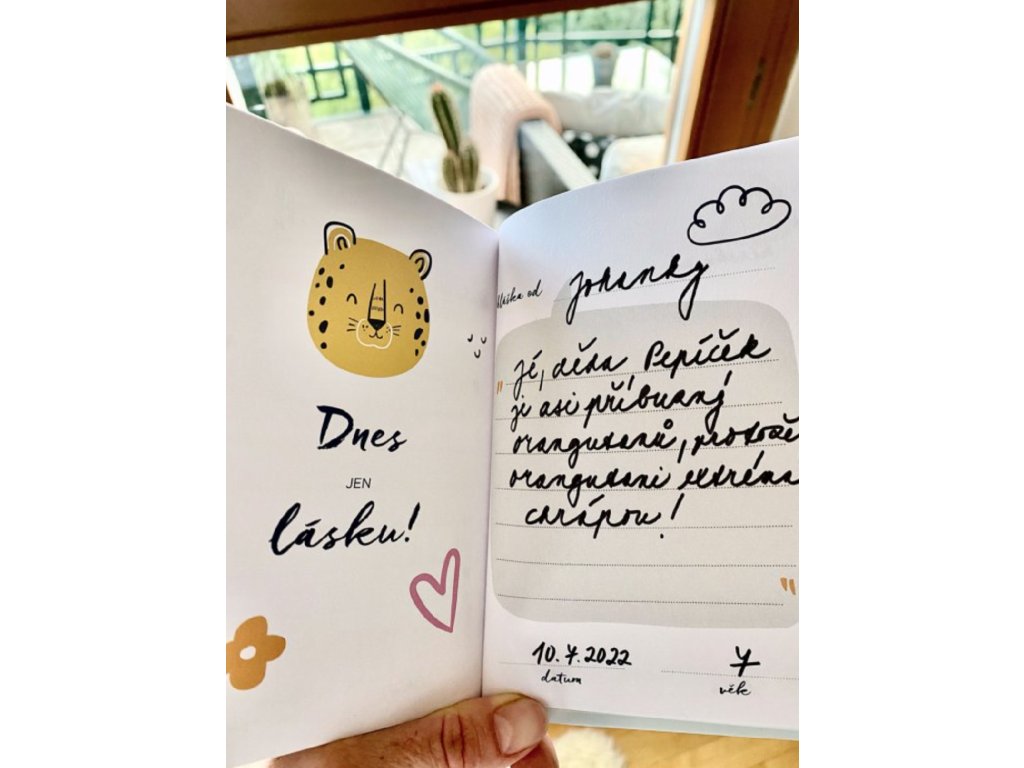 Dnes
JEN
lásku!
hláška od Johanky
" Jé, děda Pepíček
je asi příbuzný
orangutanů, protože
orangutani extrémně
chrápou!
"
10.7.2022
datum
7
věk